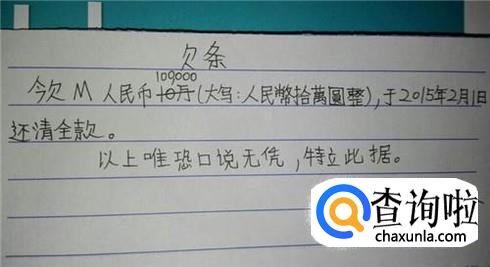 欠条
109000
今欠 M 人民币 10万 (大写：人民幣拾萬圓整)，于2015年2月1日
还清全款。
以上唯恐口说无凭，特立此据。
查询啦
chaxunla.com